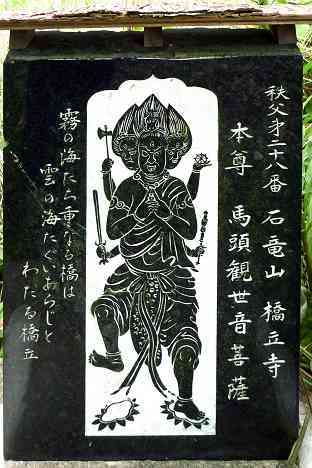 秩父第二十八番 石竜山 橋立寺
本尊 馬頭観世音菩薩
霧の海たち重なる橋は
雲の海たぐいあらじと
わたる橋立